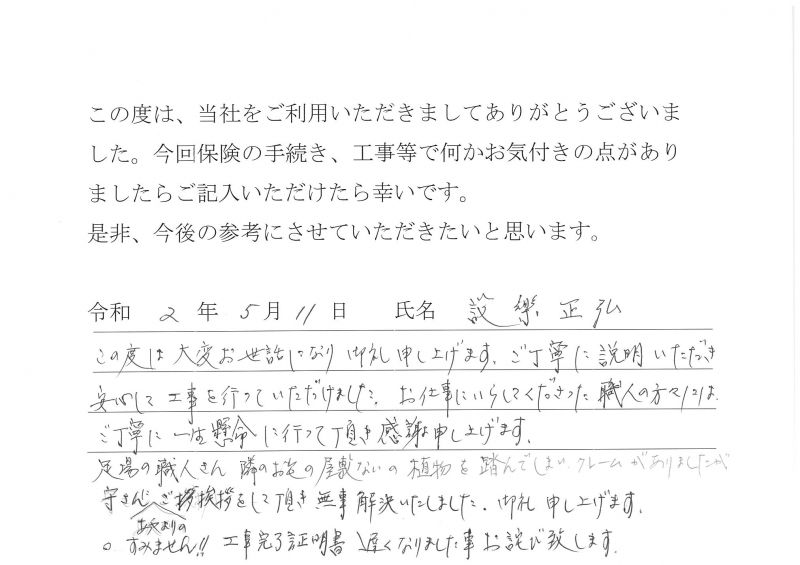 この度は、当社をご利用いただきましてありがとうございま
した。今回保険の手続き、工事等で何かお気付きの点があり
ましたらご記入いただけたら幸いです。
是非、今後の参考にさせていただきたいと思います。
令和 2 年 5月 11 日 氏名 設樂 正弘
この度は大変お世話になり御礼申し上げます。ご丁寧に説明いただき
安心して工事を行っていただけました。お仕事にいらしてくださった職人の方々には
ご丁寧に一生懸命に行って頂き感謝申し上げます。
足場の職人さん 隣のお宅の屋敷ないの植物を踏んでしまい、クレームがありましたが
守さんご挨拶をして頂き無事解決いたしました。御礼申し上げます。
。すみません!! 工事完了証明書 遅くなりました事お詫び致します。